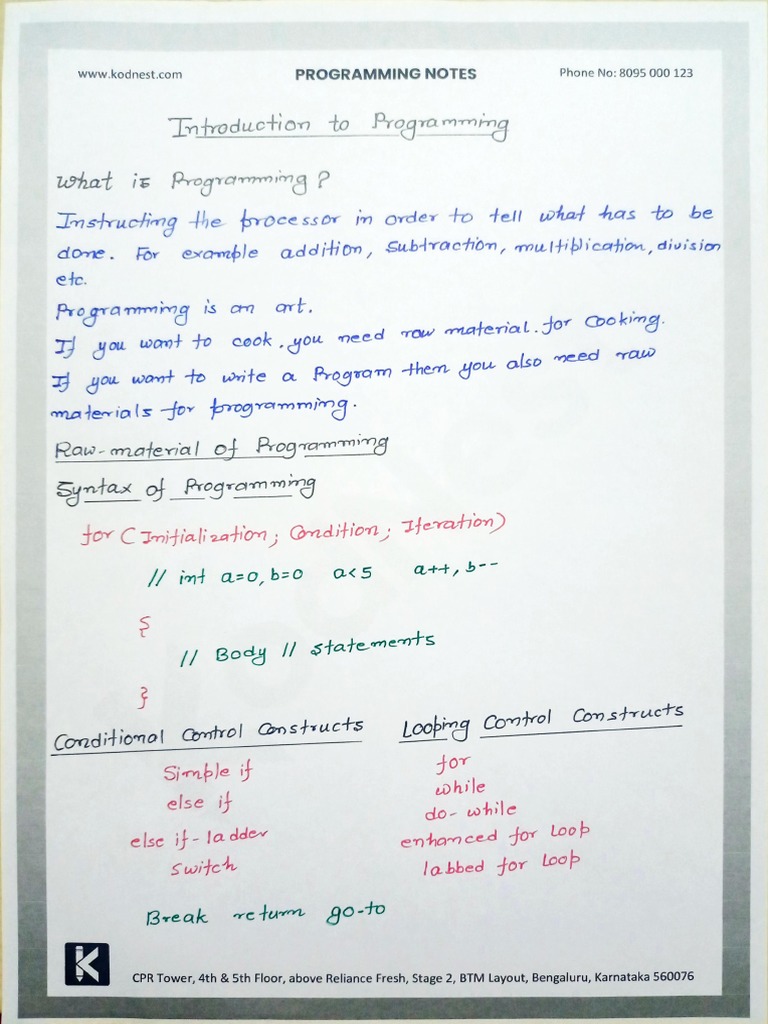 www.kodnest.com PROGRAMMING NOTES Phone No: 8095 000 123
Introduction to Programming
What is Programming?
Instructing the processor in order to tell what has to be
done. For example addition, subtraction, multiplication, division
etc.
Programming is an art.
If you want to cook. you need raw material. for cooking.
If you want to write a Program then you also need raw
materials for programming.
Raw-material of Programming
Syntax of Programming
for (Initialization; Condition; Iteration)
// int a=0, b=0 a<5 a++, b--
{
// Body // statements
}
Conditional Control Constructs Looping Control Constructs
Simple if for
else if while
do-while
else if-ladder enhanced for loop
switch labbed for loop
Break return go-to
K
CPR Tower, 4th & 5th Floor, above Reliance Fresh, Stage 2, BTM Layout, Bengaluru, Karnataka 560076